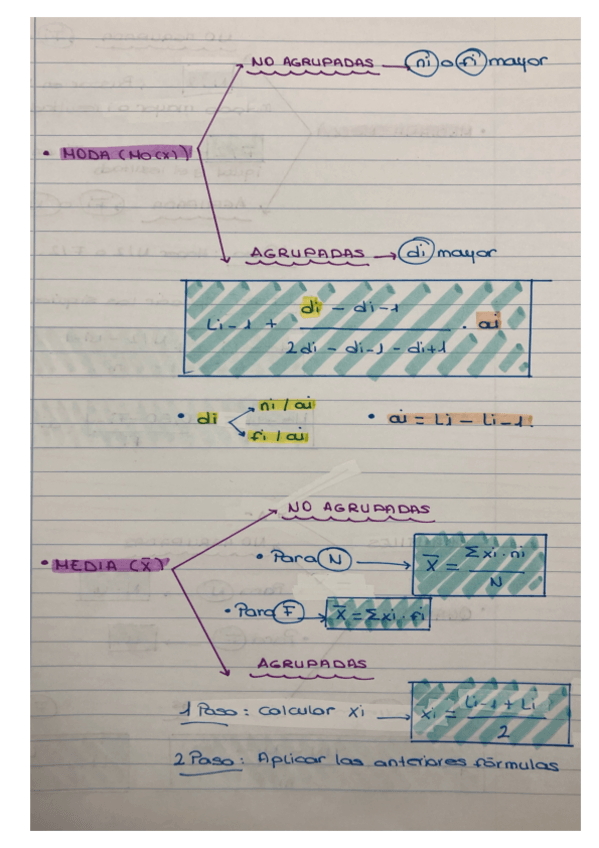 NO AGRUPADAS → ni o fi mayor
• MODA (Mo(x))
AGRUPADAS → di mayor
Li-1 + (di - di-1) / (2di - di-1 - di+1) · ai
• di
ni / ai
fi / ai
• ai = Li - Li-1.
NO AGRUPADAS
• MEDIA (X̄)
• Para N → X̄ = Σxi · ni / N
• Para F → X̄ = Σxi · fi
AGRUPADAS
1 Paso: Calcular xi → xi = (Li-1 + Li) / 2
2 Paso: Aplicar las anteriores fórmulas